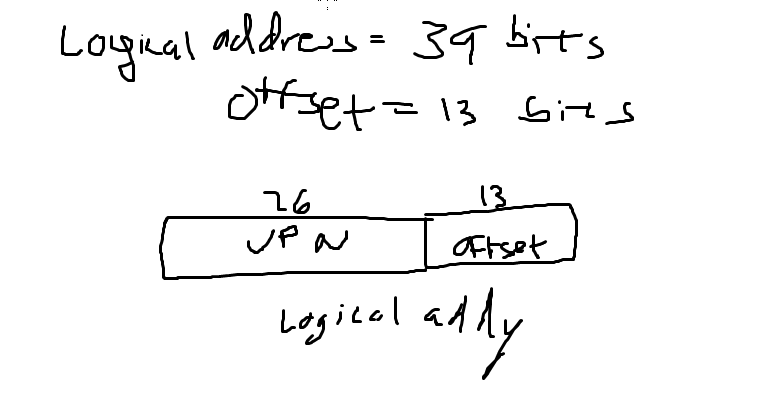 Logical address = 39 bits
Offset = 13 bits
26 13
VPN offset
Logical addy